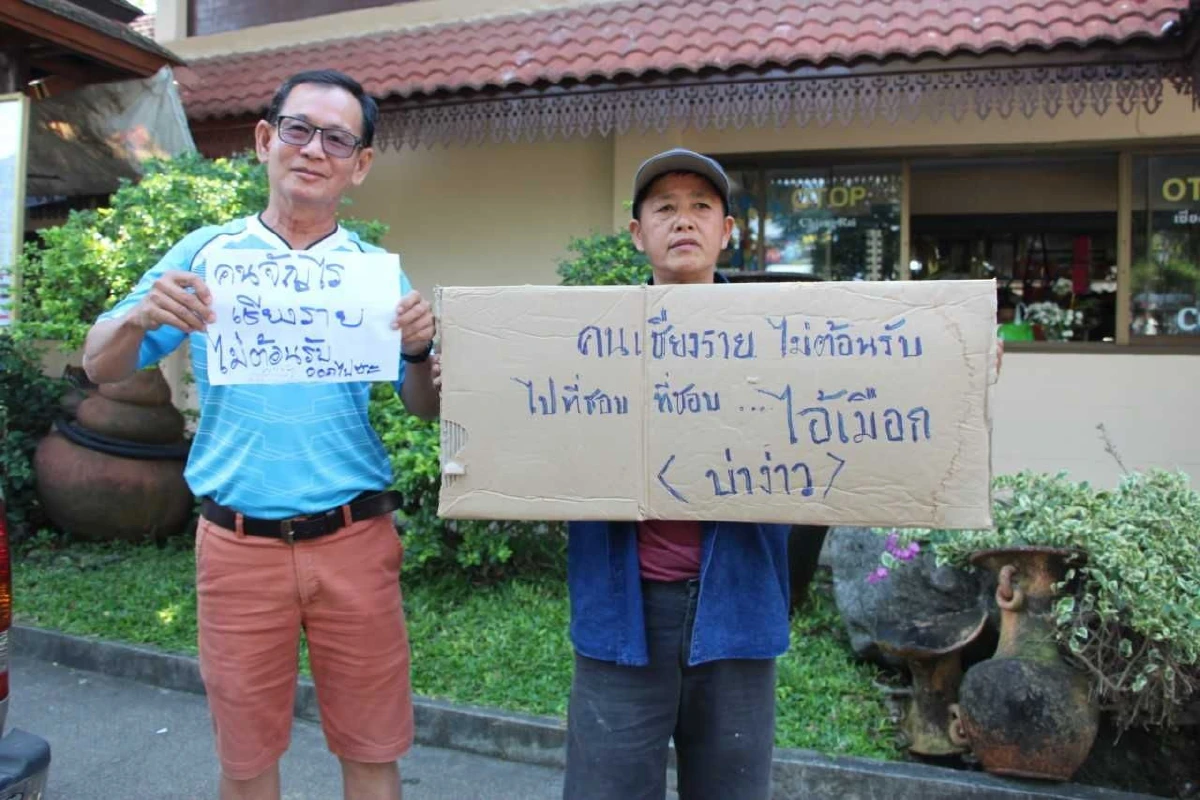 คนจัญไร
เชียงราย
ไม่ต้อนรับ
ออกไปซะ
คนเชียงราย ไม่ต้อนรับ
ไปที่ชอบ ที่ชอบ ... ไอ้เมือก
< บ่าง่าว >
OTOP
ChiangRai
OT
เชีย
C